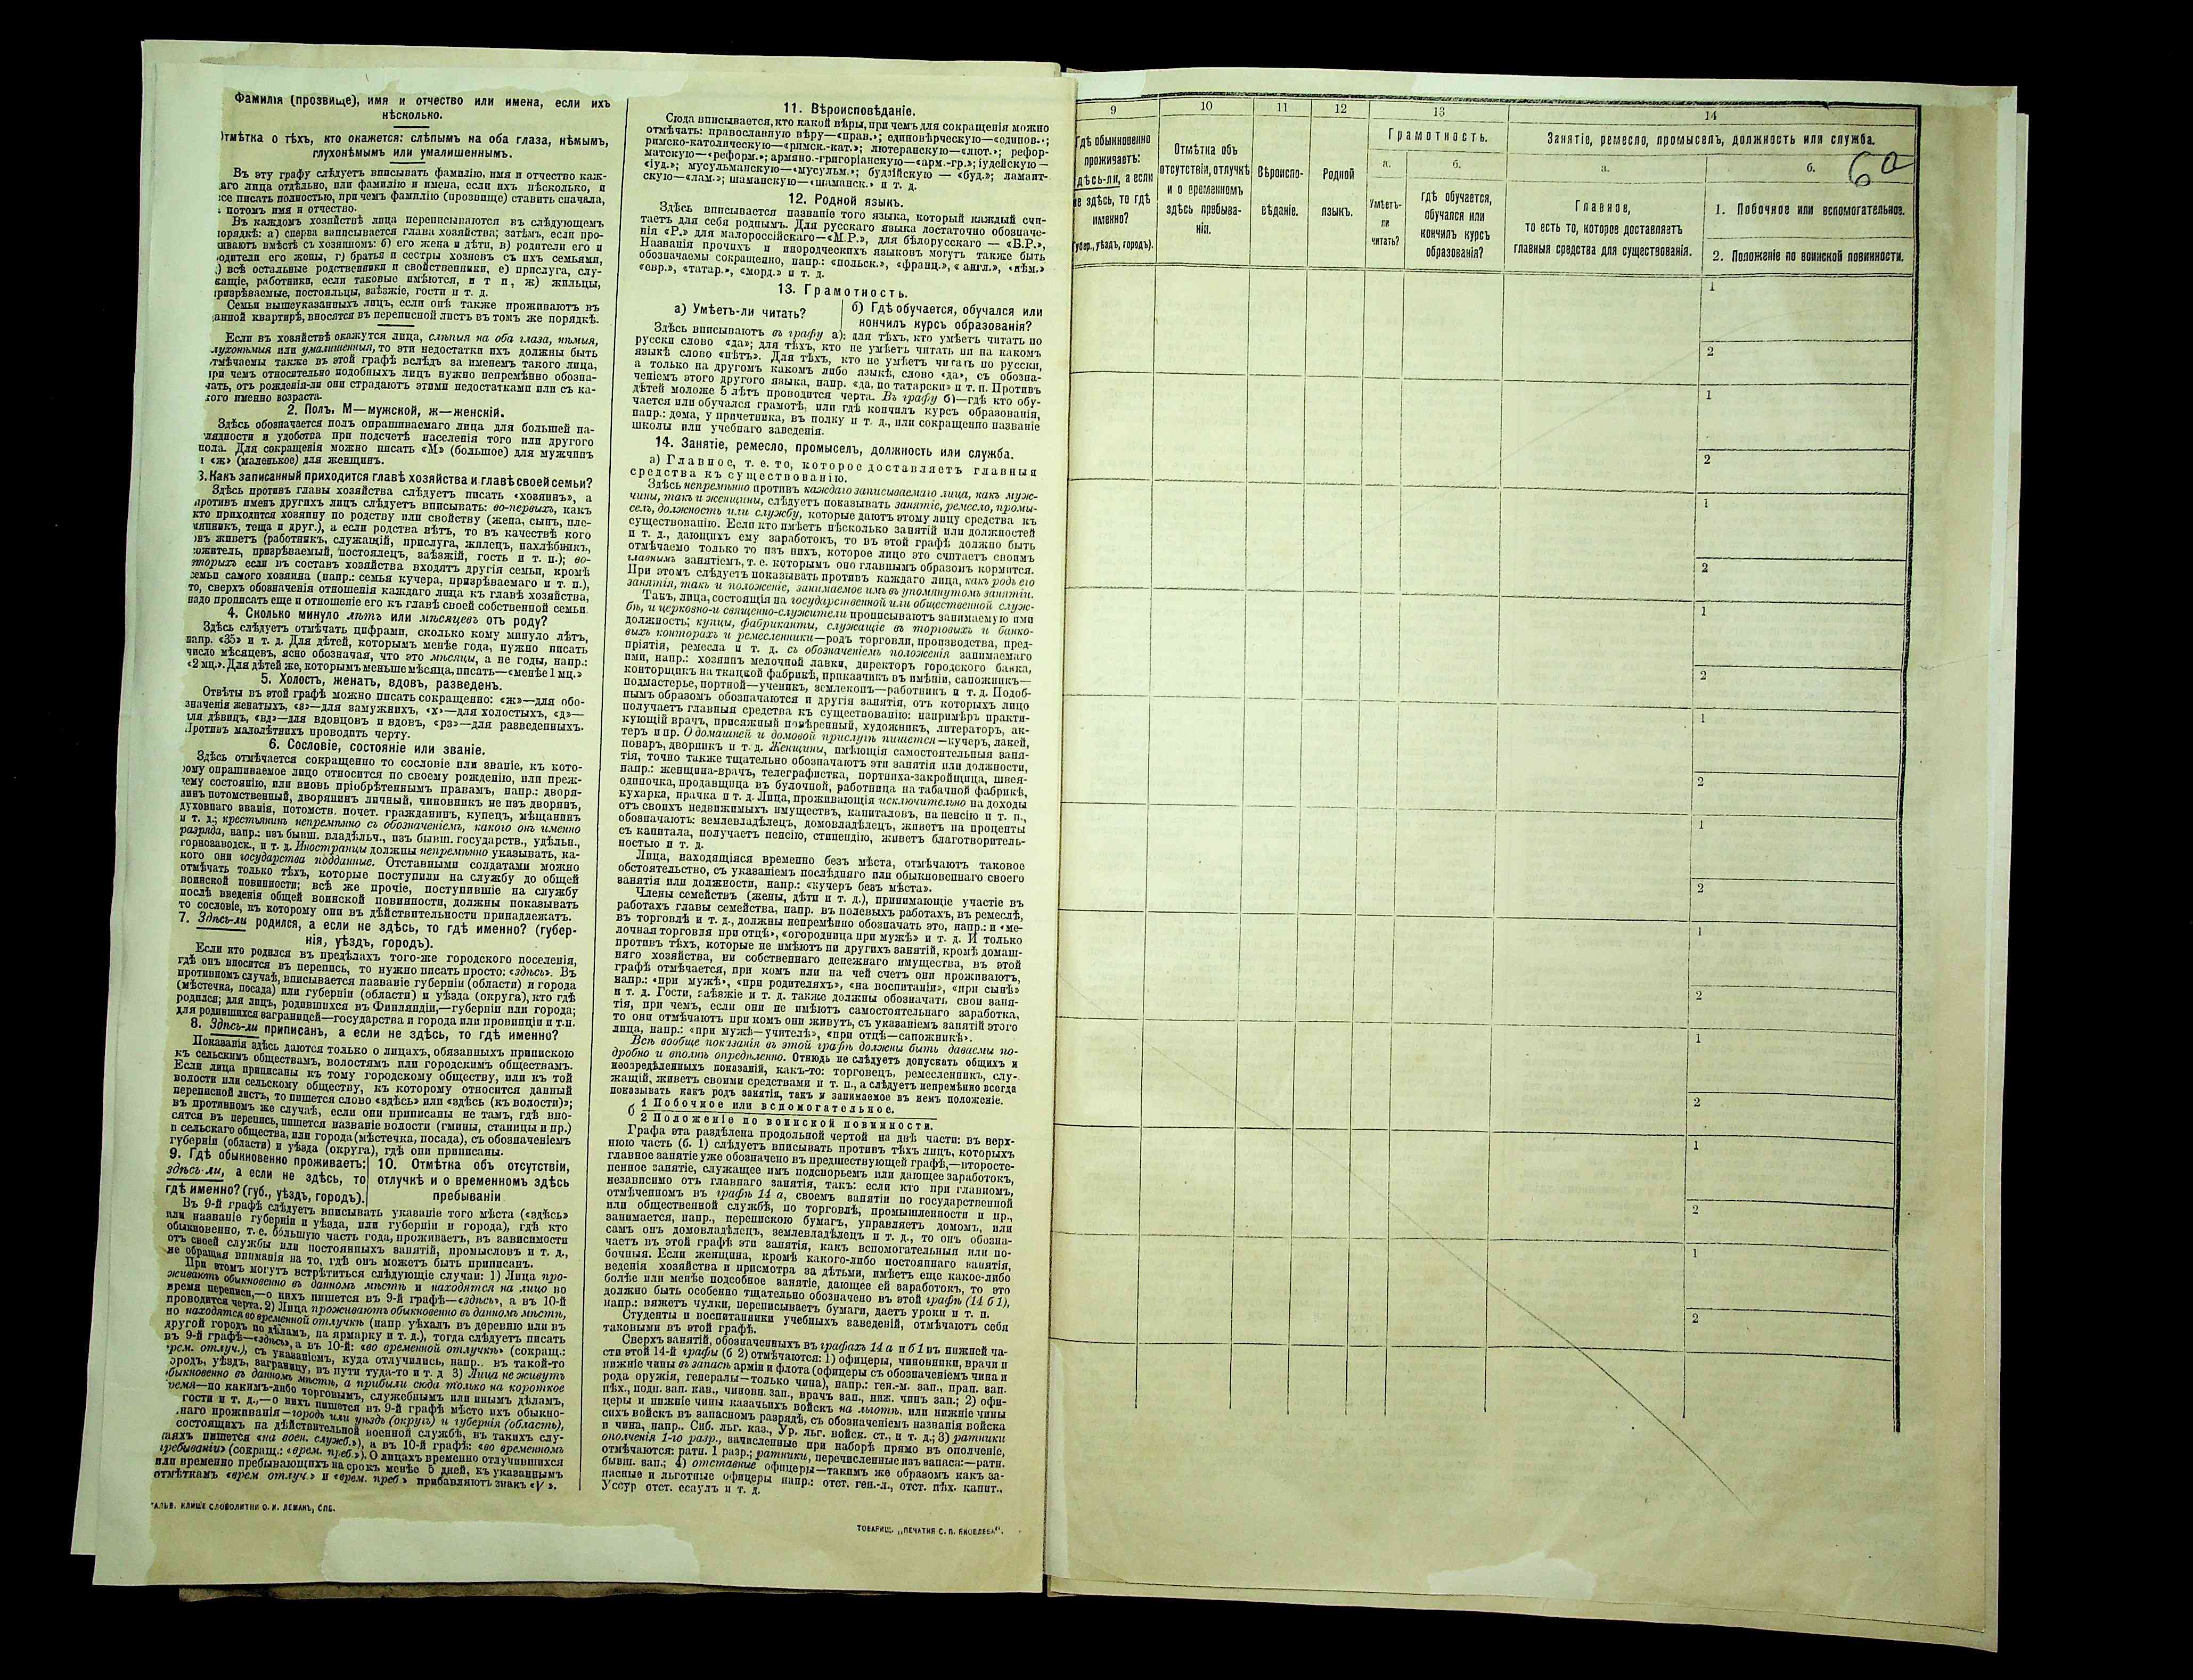 Фамилія (прозвище), имя и отчество или имена, если ихъ
нѣсколько.
тмѣтка о тѣхъ, кто окажется: слѣпымъ на оба глаза, нѣмымъ,
глухонѣмымъ или умалишеннымъ.
Въ эту графу слѣдуетъ вписывать фамилію, имя и отчество каж-
аго лица отдѣльно, или фамилію и имена, если ихъ нѣсколько, и
се писать полностью, при чемъ фамилію (прозвище) ставить сначала,
потомъ имя и отчество.
Въ каждомъ хозяйствѣ лица переписываются въ слѣдующемъ
орядкѣ: а) сперва записывается глава хозяйства; затѣмъ, если про-
иваютъ вмѣстѣ съ хозяиномъ: б) его жена и дѣти, в) родители его и
одители его жены, г) братья и сестры хозяевъ съ ихъ семьями,
) всѣ остальные родственники и свойственники, е) прислуга, слу-
жащіе, работники, если таковые имѣются, и т п, ж) жильцы,
призрѣваемые, постояльцы, заѣзжіе, гости и т. д.
Семьи вышеуказанныхъ лицъ, если онѣ также проживаютъ въ
анной квартирѣ, вносятся въ переписной листъ въ томъ же порядкѣ.
Если въ хозяйствѣ окажутся лица, слѣпыя на оба глаза, нѣмыя,
лухонѣмыя или умалишенныя, то эти недостатки ихъ должны быть
тмѣчаемы также въ этой графѣ вслѣдъ за именемъ такого лица,
при чемъ относительно подобныхъ лицъ нужно непремѣнно обозна-
чать, отъ рожденія-ли они страдаютъ этими недостатками или съ ка-
кого именно возраста.
2. Полъ. М—мужской, ж—женскій.
Здѣсь обозначается полъ опрашиваемаго лица для большей на-
глядности и удобства при подсчетѣ населенія того или другого
пола. Для сокращенія можно писать «М» (большое) для мужчинъ
и «ж» (маленькое) для женщинъ.
3. Какъ записанный приходится главѣ хозяйства и главѣ своей семьи?
Здѣсь противъ главы хозяйства слѣдуетъ писать «хозяинъ», а
противъ именъ другихъ лицъ слѣдуетъ вписывать: во-первыхъ, какъ
кто приходится хозяину по родству или свойству (жена, сынъ, пле-
мянникъ, теща и друг.), а если родства нѣтъ, то въ качествѣ кого
онъ живетъ (работникъ, служащій, прислуга, жилецъ, нахлѣбникъ,
сожитель, призрѣваемый, постоялецъ, заѣзжій, гость и т. п.); во-
вторыхъ если въ составъ хозяйства входятъ другія семьи, кромѣ
семьи самого хозяина (напр.: семья кучера, призрѣваемаго и т. п.),
то, сверхъ обозначенія отношенія каждаго лица къ главѣ хозяйства,
надо прописать еще и отношеніе его къ главѣ своей собственной семьи.
4. Сколько минуло лѣтъ или мѣсяцевъ отъ роду?
Здѣсь слѣдуетъ отмѣчать цифрами, сколько кому минуло лѣтъ,
напр. «35» и т. д. Для дѣтей, которымъ менѣе года, нужно писать
число мѣсяцевъ, ясно обозначая, что это мѣсяцы, а не годы, напр.:
«2 мц.». Для дѣтей же, которымъ меньше мѣсяца, писать—«менѣе 1 мц.»
5. Холостъ, женатъ, вдовъ, разведенъ.
Отвѣты въ этой графѣ можно писать сокращенно: «ж»—для обо-
значенія женатыхъ, «з»—для замужнихъ, «х»—для холостыхъ, «д»—
для дѣвицъ, «вд»—для вдовцовъ и вдовъ, «рз»—для разведенныхъ.
Противъ малолѣтнихъ проводить черту.
6. Сословіе, состояніе или званіе.
Здѣсь отмѣчается сокращенно то сословіе или званіе, къ кото-
рому опрашиваемое лицо относится по своему рожденію, или преж-
нему состоянію, или вновь пріобрѣтеннымъ правамъ, напр.: дворя-
нинъ потомственный, дворянинъ личный, чиновникъ не изъ дворянъ,
духовнаго званія, потомств. почет. гражданинъ, купецъ, мѣщанинъ
и т. д.; крестьянинъ непремѣнно съ обозначеніемъ, какого онъ именно
разряда, напр.: изъ бывш. владѣльч., изъ бывш. государств., удѣльн.,
горнозаводск., и т. д. Иностранцы должны непремѣнно указывать, ка-
кого они государства подданные. Отставными солдатами можно
отмѣчать только тѣхъ, которые поступили на службу до общей
воинской повинности; всѣ же прочіе, поступившіе на службу
послѣ введенія общей воинской повинности, должны показывать
то сословіе, къ которому они въ дѣйствительности принадлежатъ.
7. Здѣсь-ли родился, а если не здѣсь, то гдѣ именно? (губер-
нія, уѣздъ, городъ).
Если кто родился въ предѣлахъ того-же городского поселенія,
гдѣ онъ вносится въ перепись, то нужно писать просто: «здѣсь». Въ
противномъ случаѣ, вписывается названіе губерніи (области) и города
(мѣстечка, посада) или губерніи (области) и уѣзда (округа), кто гдѣ
родился; для лицъ, родившихся въ Финляндіи,—губерніи или города;
для родившихся заграницей—государства и города или провинціи и т.п.
8. Здѣсь-ли приписанъ, а если не здѣсь, то гдѣ именно?
Показанія здѣсь даются только о лицахъ, обязанныхъ припискою
къ сельскимъ обществамъ, волостямъ или городскимъ обществамъ.
Если лица приписаны къ тому городскому обществу, или къ той
волости или сельскому обществу, къ которому относится данный
переписной листъ, то пишется слово «здѣсь» или «здѣсь (къ волости)»;
въ противномъ же случаѣ, если они приписаны не тамъ, гдѣ вно-
сятся въ перепись, пишется названіе волости (гмины, станицы и пр.)
и сельскаго общества, или города (мѣстечка, посада), съ обозначеніемъ
губерніи (области) и уѣзда (округа), гдѣ они приписаны.
9. Гдѣ обыкновенно проживаетъ:
здѣсь-ли, а если не здѣсь, то
гдѣ именно? (губ., уѣздъ, городъ).
10. Отмѣтка объ отсутствіи,
отлучкѣ и о временномъ здѣсь
пребываніи
Въ 9-й графѣ слѣдуетъ вписывать указаніе того мѣста («здѣсь»
или названіе губерніи и уѣзда, или губерніи и города), гдѣ кто
обыкновенно, т. е. большую часть года, проживаетъ, въ зависимости
отъ своей службы или постоянныхъ занятій, промысловъ и т. д.,
не обращая вниманія на то, гдѣ онъ можетъ быть приписанъ.
При этомъ могутъ встрѣтиться слѣдующіе случаи: 1) Лица про-
живаютъ обыкновенно въ данномъ мѣстѣ и находятся на лицо во
время переписи,—о нихъ пишется въ 9-й графѣ—«здѣсь», а въ 10-й
проводится черта. 2) Лица проживаютъ обыкновенно въ данномъ мѣстѣ,
но находятся во временной отлучкѣ (напр уѣхалъ въ деревню или въ
другой городъ по дѣламъ, на ярмарку и т. д.), тогда слѣдуетъ писать
въ 9-й графѣ—«здѣсь», а въ 10-й: «во временной отлучкѣ» (сокращ.:
рем. отлуч.), съ указаніемъ, куда отлучились, напр.. въ такой-то
ородъ, уѣздъ, заграницу, въ пути туда-то и т. д 3) Лица не живутъ
быкновенно въ данномъ мѣстѣ, а прибыли сюда только на короткое
ремя—по какимъ-либо торговымъ, служебнымъ или инымъ дѣламъ,
гости и т. д.,—о нихъ пишется въ 9-й графѣ мѣсто ихъ обыкно-
наго проживанія—городъ или уѣздъ (округъ) и губернія (область),
состоящихъ на дѣйствительной военной службѣ, въ такихъ слу-
аяхъ пишется «на воен. служб.»), а въ 10-й графѣ: «во временномъ
пребываніи» (сокращ.: «врем. преб.»). О лицахъ временно отлучившихся
или временно пребывающихъ на срокъ менѣе 5 дней, къ указаннымъ
отмѣткамъ «врем отлуч.» и «врем. преб.» прибавляютъ знакъ «V».
АЛЬВ. КЛИШЕ СЛОВОЛИТНИ О. И. ЛЕМАНЪ, СПБ.
11. Вѣроисповѣданіе.
Сюда вписывается, кто какой вѣры, при чемъ для сокращенія можно
отмѣчать: православную вѣру—«прав.»; единовѣрческую—«единов.»;
римско-католическую—«римск.-кат.»; лютеранскую—«лют.»; рефор-
матскую—«реформ.»; армяно-григоріанскую—«арм.-гр.»; іудейскую—
«іуд.»; мусульманскую—«мусульм.»; буддійскую — «буд.»; ламаит-
скую—«лам.»; шаманскую—«шаманск.» и т. д.
12. Родной языкъ.
Здѣсь вписывается названіе того языка, который каждый счи-
таетъ для себя роднымъ. Для русскаго языка достаточно обозначе-
нія «Р.» для малороссійскаго—«М.Р.», для бѣлорусскаго — «Б.Р.»,
Названія прочихъ и инородческихъ языковъ могутъ также быть
обозначаемы сокращенно, напр.: «польск.», «франц.», « англ.», «нѣм.»
«евр.», «татар.», «морд.» и т. д.
13. Грамотность.
а) Умѣетъ-ли читать?
б) Гдѣ обучается, обучался или
кончилъ курсъ образованія?
Здѣсь вписываютъ въ графу а): для тѣхъ, кто умѣетъ читать по
русски слово «да»; для тѣхъ, кто не умѣетъ читать ни на какомъ
языкѣ слово «нѣтъ». Для тѣхъ, кто не умѣетъ читать по русски,
а только на другомъ какомъ либо языкѣ, слово «да», съ обозна-
ченіемъ этого другого языка, напр. «да, по татарски» и т. п. Противъ
дѣтей моложе 5 лѣтъ проводится черта. Въ графу б)—гдѣ кто обу-
чается или обучался грамотѣ, или гдѣ кончилъ курсъ образованія,
напр.: дома, у причетника, въ полку и т. д., или сокращенно названіе
школы или учебнаго заведенія.
14. Занятіе, ремесло, промыселъ, должность или служба.
а) Главное, т. е. то, которое доставляетъ главныя
средства къ существованію.
Здѣсь непремѣнно противъ каждаго записываемаго лица, какъ муж-
чины, такъ и женщины, слѣдуетъ показывать занятіе, ремесло, промы-
селъ, должность или службу, которые даютъ этому лицу средства къ
существованію. Если кто имѣетъ нѣсколько занятій или должностей
и т. д., дающихъ ему заработокъ, то въ этой графѣ должно быть
отмѣчаемо только то изъ нихъ, которое лицо это считаетъ своимъ
главнымъ занятіемъ, т. е. которымъ оно главнымъ образомъ кормится.
При этомъ слѣдуетъ показывать противъ каждаго лица, какъ родъ его
занятія, такъ и положеніе, занимаемое имъ въ упомянутомъ занятіи.
Такъ, лица, состоящія на государственной или общественной служ-
бѣ, и церковно-и священно-служители прописываютъ занимаемую ими
должность; купцы, фабриканты, служащіе въ торговыхъ и банко-
выхъ конторахъ и ремесленники—родъ торговли, производства, пред-
пріятія, ремесла и т. д. съ обозначеніемъ положенія занимаемаго
ими, напр.: хозяинъ мелочной лавки, директоръ городского банка,
конторщикъ на ткацкой фабрикѣ, приказчикъ въ имѣніи, сапожникъ—
подмастерье, портной—ученикъ, землекопъ—работникъ и т. д. Подоб-
нымъ образомъ обозначаются и другія занятія, отъ которыхъ лицо
получаетъ главныя средства къ существованію: напримѣръ практи-
кующій врачъ, присяжный повѣренный, художникъ, литераторъ, ак-
теръ и пр. О домашней и домовой прислугѣ пишется—кучеръ, лакей,
поваръ, дворникъ и т. д. Женщины, имѣющія самостоятельныя заня-
тія, точно также тщательно обозначаютъ эти занятія или должности,
напр.: женщина-врачъ, телеграфистка, портниха-закройщица, швея-
одиночка, продавщица въ булочной, работница на табачной фабрикѣ,
кухарка, прачка и т. д. Лица, проживающія исключительно на доходы
отъ своихъ недвижимыхъ имуществъ, капиталовъ, на пенсію и т. п.,
обозначаютъ: землевладѣлецъ, домовладѣлецъ, живетъ на проценты
съ капитала, получаетъ пенсію, стипендію, живетъ благотворитель-
ностью и т. д.
Лица, находящіяся временно безъ мѣста, отмѣчаютъ таковое
обстоятельство, съ указаніемъ послѣдняго или обыкновеннаго своего
занятія или должности, напр.: «кучеръ безъ мѣста».
Члены семействъ (жены, дѣти и т. д.), принимающіе участіе въ
работахъ главы семейства, напр. въ полевыхъ работахъ, въ ремеслѣ,
въ торговлѣ и т. д., должны непремѣнно обозначать это, напр.: и «ме-
лочная торговля при отцѣ», «огородница при мужѣ» и т. д. И только
противъ тѣхъ, которые не имѣютъ ни другихъ занятій, кромѣ домаш-
няго хозяйства, ни собственнаго денежнаго имущества, въ этой
графѣ отмѣчается, при комъ или на чей счетъ они проживаютъ,
напр.: «при мужѣ», «при родителяхъ», «на воспитаніи», «при сынѣ»
и т. д. Гости, заѣзжіе и т. д. также должны обозначать свои заня-
тія, при чемъ, если они не имѣютъ самостоятельнаго заработка,
то они отмѣчаютъ при комъ они живутъ, съ указаніемъ занятій этого
лица, напр.: «при мужѣ—учителѣ», «при отцѣ—сапожникѣ».
Всѣ вообще показанія въ этой графѣ должны быть даваемы по-
дробно и вполнѣ опредѣленно. Отнюдь не слѣдуетъ допускать общихъ и
неопредѣленныхъ показаній, какъ-то: торговецъ, ремесленникъ, слу-
жащій, живетъ своими средствами и т. п., а слѣдуетъ непремѣнно всегда
показывать какъ родъ занятія, такъ и занимаемое въ немъ положеніе.
б 1 Побочное или вспомогательное.
2 Положеніе по воинской повинности.
Графа эта раздѣлена продольной чертой на двѣ части: въ верх-
нюю часть (б. 1) слѣдуетъ вписывать противъ тѣхъ лицъ, которыхъ
главное занятіе уже обозначено въ предшествующей графѣ,—второсте-
пенное занятіе, служащее имъ подспорьемъ или дающее заработокъ,
независимо отъ главнаго занятія, такъ: если кто при главномъ,
отмѣченномъ въ графѣ 14 а, своемъ занятіи по государственной
или общественной службѣ, по торговлѣ, промышленности и пр.,
занимается, напр., перепискою бумагъ, управляетъ домомъ, или
самъ онъ домовладѣлецъ, землевладѣлецъ и т. д., то онъ обозна-
чаетъ въ этой графѣ эти занятія, какъ вспомогательныя или по-
бочныя. Если женщина, кромѣ какого-либо постояннаго занятія,
веденія хозяйства и присмотра за дѣтьми, имѣетъ еще какое-либо
болѣе или менѣе подсобное занятіе, дающее ей заработокъ, то это
должно быть особенно тщательно обозначено въ этой графѣ (14 б 1),
напр.: вяжетъ чулки, переписываетъ бумаги, даетъ уроки и т. п.
Студенты и воспитанники учебныхъ заведеній, отмѣчаютъ себя
таковыми въ этой графѣ.
Сверхъ занятій, обозначенныхъ въ графахъ 14 а и б 1 въ нижней ча-
сти этой 14-й графы (б 2) отмѣчаются: 1) офицеры, чиновники, врачи и
нижніе чины въ запасѣ арміи и флота (офицеры съ обозначеніемъ чина и
рода оружія, генералы—только чина), напр.: ген.-м. зап., прап. зап.
пѣх., подп. зап. кав., чиновн. зап., врачъ зап., ниж. чинъ зап.; 2) офи-
церы и нижніе чины казачьихъ войскъ на льготѣ, или нижніе чины
сихъ войскъ въ запасномъ разрядѣ, съ обозначеніемъ названія войска
и чина, напр.. Сиб. льг. каз., Ур. льг. войск. ст., и т. д.; 3) ратники
ополченія 1-го разр., зачисленные при наборѣ прямо въ ополченіе,
отмѣчаются: ратн. 1 разр.; ратники, перечисленные изъ запаса:—ратн.
бывш. зап.; 4) отставные офицеры—такимъ же образомъ какъ за-
пасные и льготные офицеры напр.: отст. ген.-л., отст. пѣх. капит.,
Уссур отст. есаулъ и т. д.
ТОВАРИЩ. „ПЕЧАТНЯ С. П. ЯКОВЛЕВА“.
9
Гдѣ обыкновенно
проживаетъ:
здѣсь-ли, а если
не здѣсь, то гдѣ
именно?
(Губер., уѣздъ, городъ).
10
Отмѣтка объ
отсутствіи, отлучкѣ
и о временномъ
здѣсь пребыва-
ніи.
11
Вѣроиспо-
вѣданіе.
12
Родной
языкъ.
13
Грамотность.
а.
Умѣетъ-
ли
читать?
б.
Гдѣ обучается,
обучался или
кончилъ курсъ
образованія?
14
Занятіе, ремесло, промыселъ, должность или служба.
а.
Главное,
то есть то, которое доставляетъ
главныя средства для существованія.
б.
6а
1. Побочное или вспомогательное.
2. Положеніе по воинской повинности.
1
2
1
2
1
2
1
2
1
2
1
2
1
2
1
2
1
2
1
2